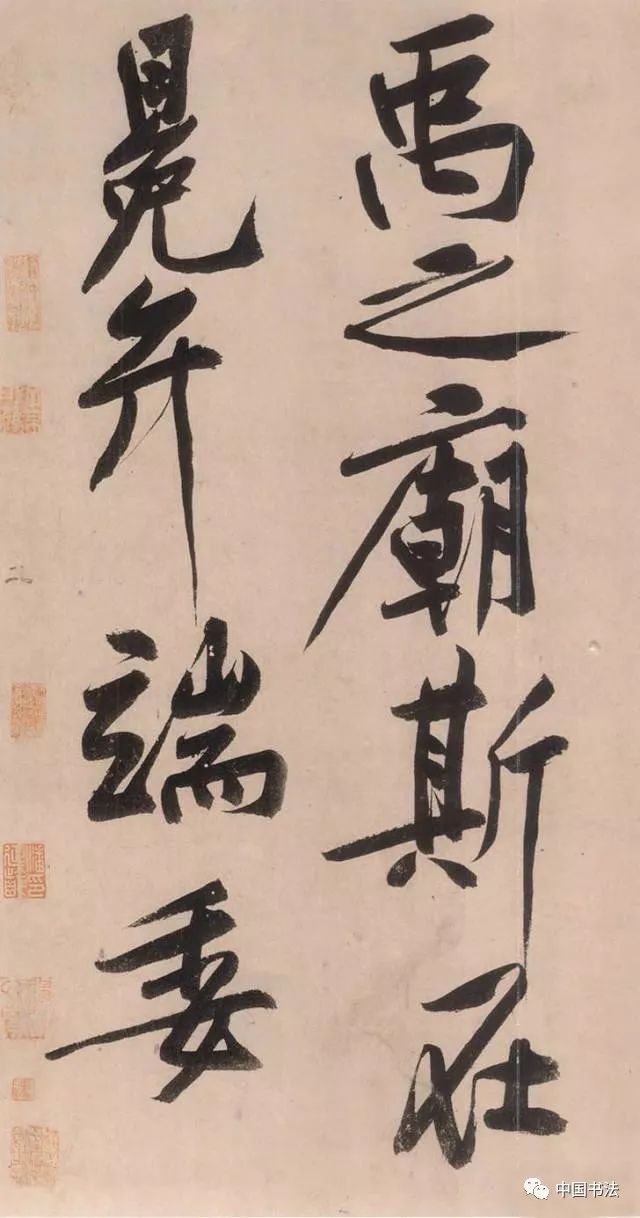 禹之廟斯在
冕弁端委
中国书法